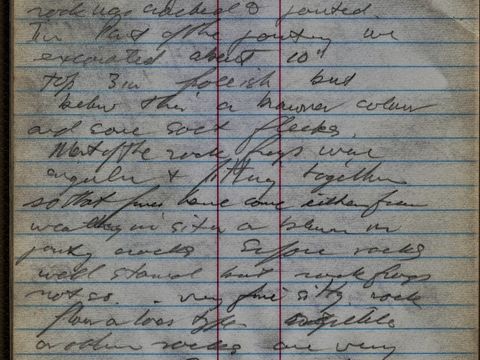 rock was cracked & jointed.
In part of the jointing we
excavated about 10"
top 3 in but
below this a browner colour
and some soft flecks.
Most of the rock frags were
angular & fitting together
so that fines have come either from
weathering in situ or blown in
cracks Surface rocks
well stained but rock frags
not so. very fine silty rock
flour or loess type
or other rocks are very